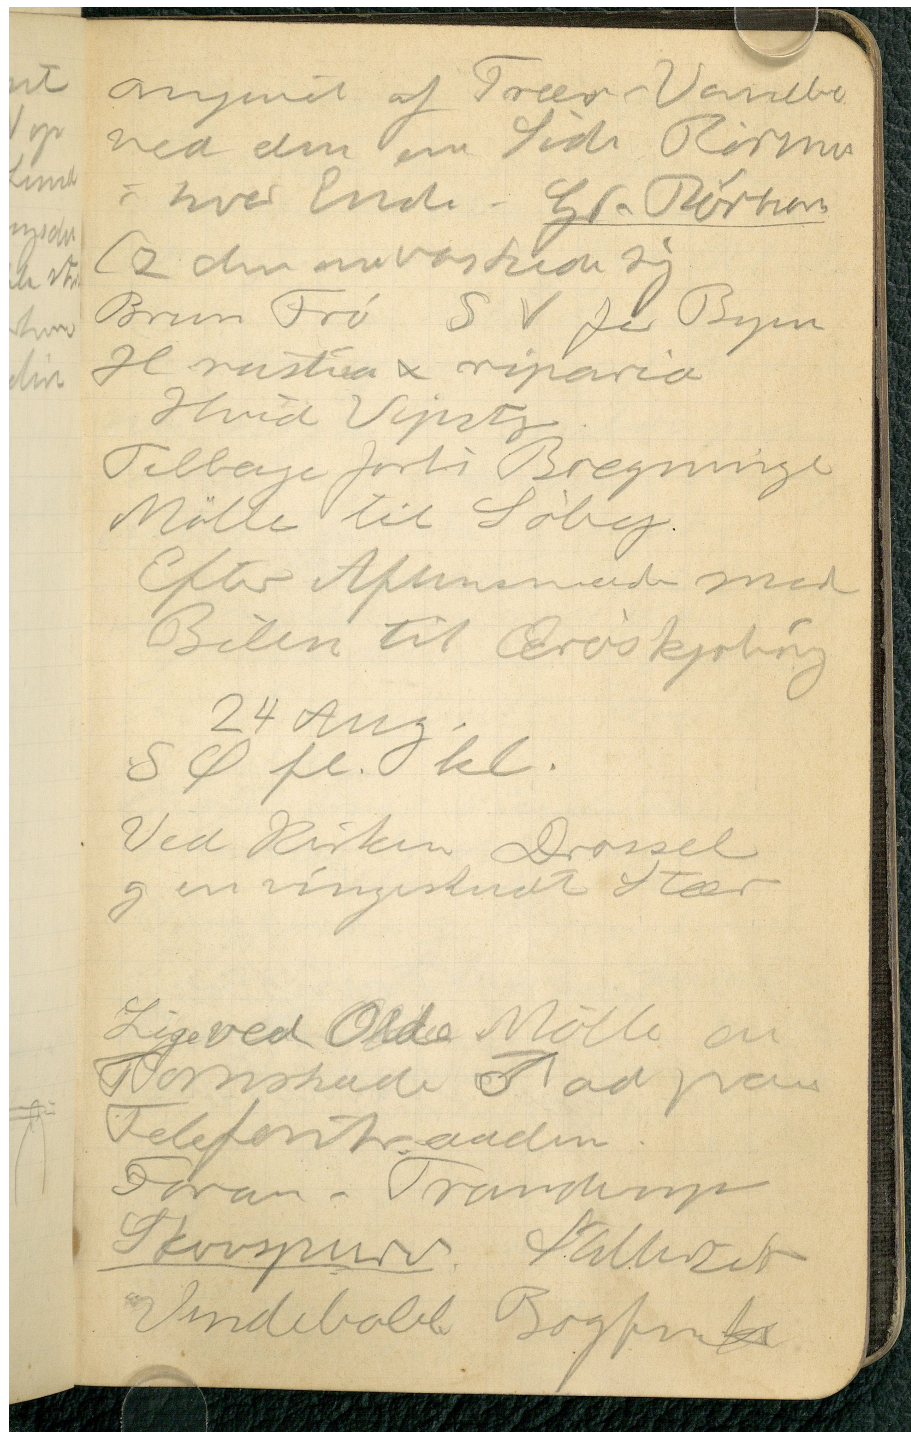 omgivet af Træer - Vandbe
ved den en Side Rörmo
i hver Ende - Gr. Rörhøne
Og den
Brun Frö SV for Byen
H rustica & riparia
Hvid Vipstj
Tilbage forbi Bregninge
Mölle til Söby.
Efter Aftensmaden med
Bilen til Æröskjöbing
24 Aug.
SØ fl. kl.
Ved Kirken Drossel
g en vingeskudt Stær
Ligeved Olde Mölle en
Tornskade ♂ ad paa
Telefontraaden.
Foran - Tranderup
Skovspurv. Stillidser
Vindeballe Bogfinke